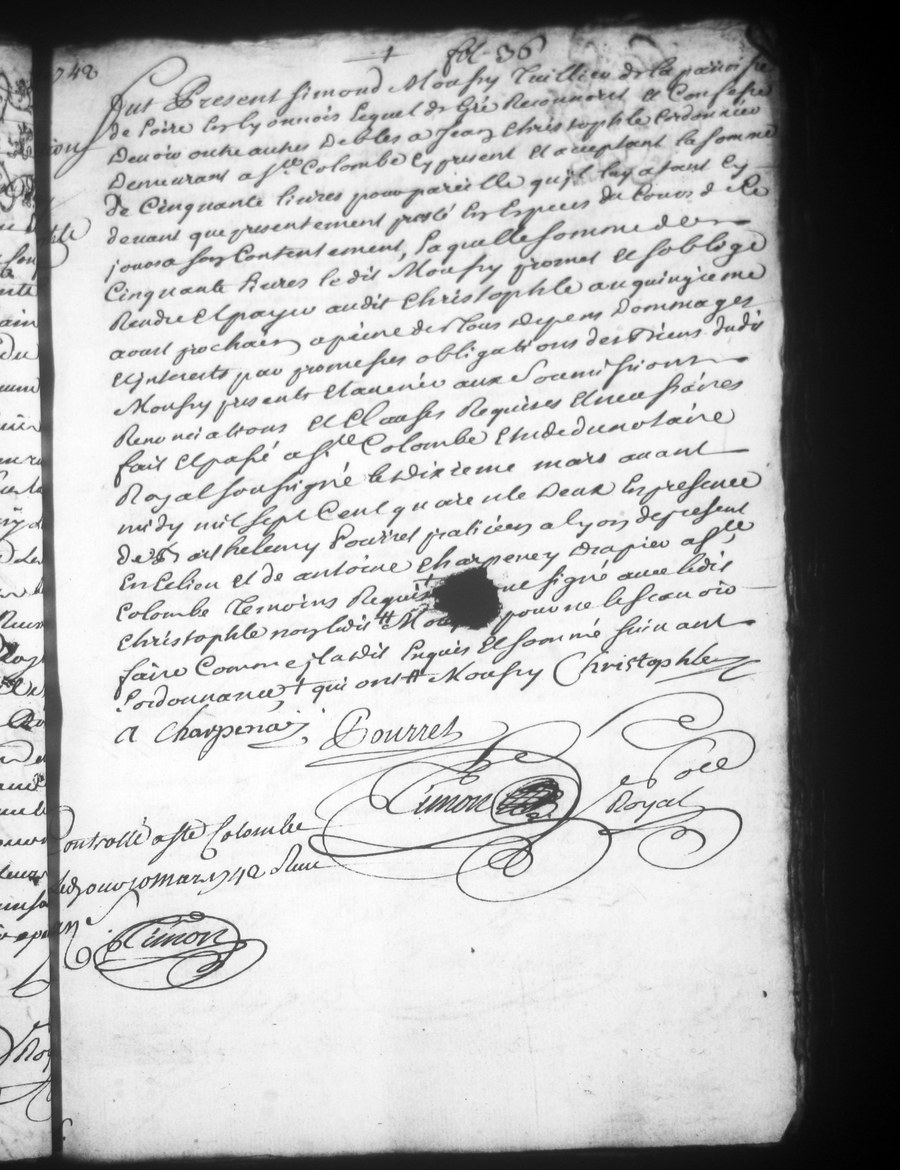 742
fol. 36
fut Present Simond Monfry Tuillier de la paroisse
de Loire les lyonnois lequel de Gré Reconnoist et Confesse
Devoir outre autres Debtes a Jean Christophle Cordonnier
Demeurant a Ste Colombe cy present et acceptant la somme
de Cinquante livres pour pareille qu'il luy a fait cy
devant que presentement presté En Especes du Cours de ce
jour a son Contentement, Laquelle somme de
Cinquante livres ledit Monfry promet et s'oblige
Rendre et payer audit Christophle au quinzieme
aoust prochain a peine de tous depens Dommages
et interets par promesses obligations des Biens dudit
Monfry presents et a venir aux Soumissions
Renonciations et Clauses Requises et necessaires
fait et passé a Ste Colombe Etude du notaire
Royal soussigné le dixieme mars avant
midy mil sept Cent quarente Deux En presence
de Barthelemy Pourret praticien a lyon de present
En ce lieu et de antoine Charpeney Drapier a Ste
Colombe Temoins Requis signé avec ledit
Christophle non ledit pour ne le scavoir
faire Comme il a dit Enquis et sommé suivant
l'ordonnance qui ont Monfry Christophle
A Charpenay Pourret
Simon
Royal
Controllé a Ste Colombe
led jour 10 mars 1742
Simon